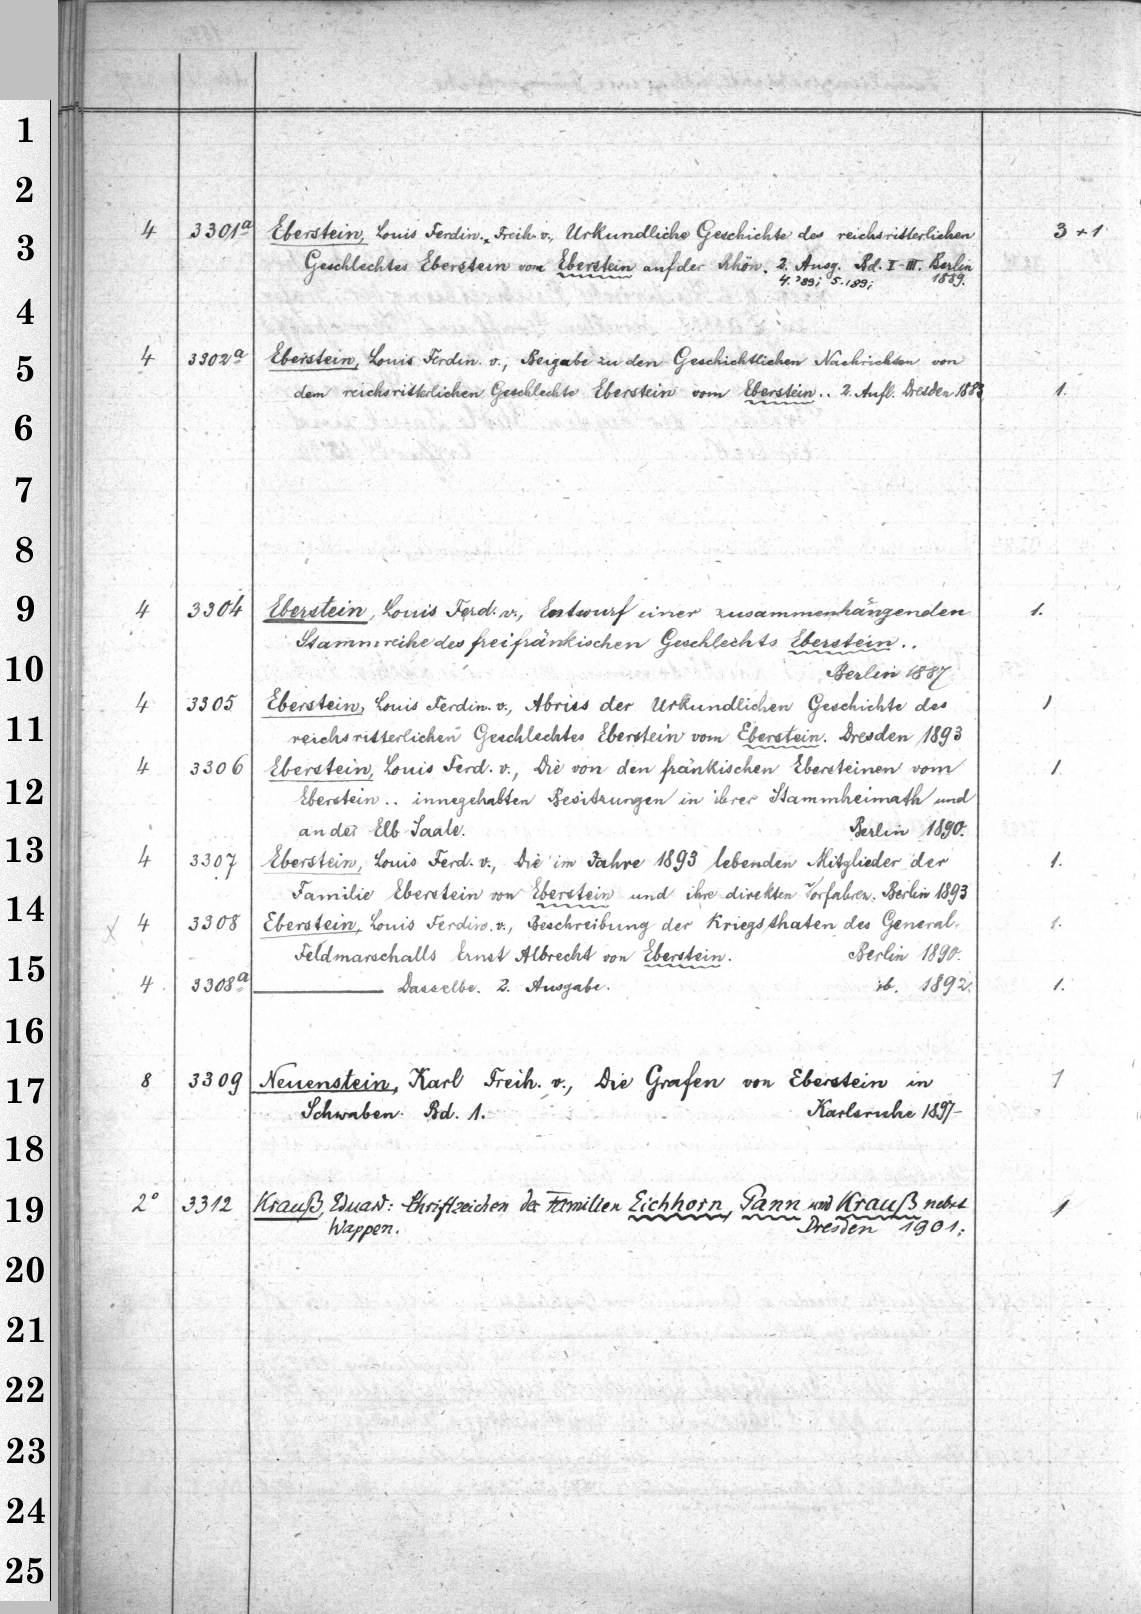 1
2
3
4
5
6
7
8
9
10
11
12
13
14
15
16
17
18
19
20
21
22
23
24
25
4 3301a Eberstein, Louis Ferdin. Freih. v., Urkundliche Geschichte des reichsritterlichen 3 + 1
Geschlechtes Eberstein vom Eberstein auf der Rhön. 2. Ausg. Bd. I-III. Berlin
4. '89; 5. 189; 1889.
4 3302a Eberstein, Louis Ferdin. v., Beigabe zu den Geschichtlichen Nachrichten von
dem reichsritterlichen Geschlechte Eberstein vom Eberstein.. 2. Aufl. Dresden 1883 1.
4 3304 Eberstein, Louis Ferd. v., Entwurf einer zusammenhängenden 1.
Stammreihe des freifränkischen Geschlechts Eberstein..
Berlin 1887
4 3305 Eberstein, Louis Ferdin. v., Abriss der Urkundlichen Geschichte des 1
reichsritterlichen Geschlechtes Eberstein vom Eberstein. Dresden 1893
4 3306 Eberstein, Louis Ferd. v., Die von den fränkischen Ebersteinen vom 1
Eberstein.. innegehabten Besitzungen in ihrer Stammheimath und
an der Elb Saale. Berlin 1890.
4 3307 Eberstein, Louis Ferd. v., Die im Jahre 1893 lebenden Mitglieder der 1.
Familie Eberstein von Eberstein und ihre direkten Vorfahren. Berlin 1893
4 3308 Eberstein, Louis Ferdin. v., Beschreibung der Kriegsthaten des General- 1.
Feldmarschalls Ernst Albrecht von Eberstein. Berlin 1890.
4 3308a Dasselbe. 2. Ausgabe. ib. 1892. 1.
8 3309 Neuenstein, Karl Freih. v., Die Grafen von Eberstein in 1
Schwaben. Bd. 1. Karlsruhe 1897-
2° 3312 Krauß, Eduard: Schriftzeichen der Familien Eichhorn, Tann und Krauß nebst 1
Wappen. Dresden 1901.